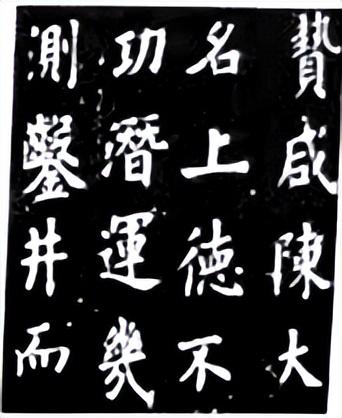 贄咸陳大
名上徳不
功潛運幾
測鑿井而